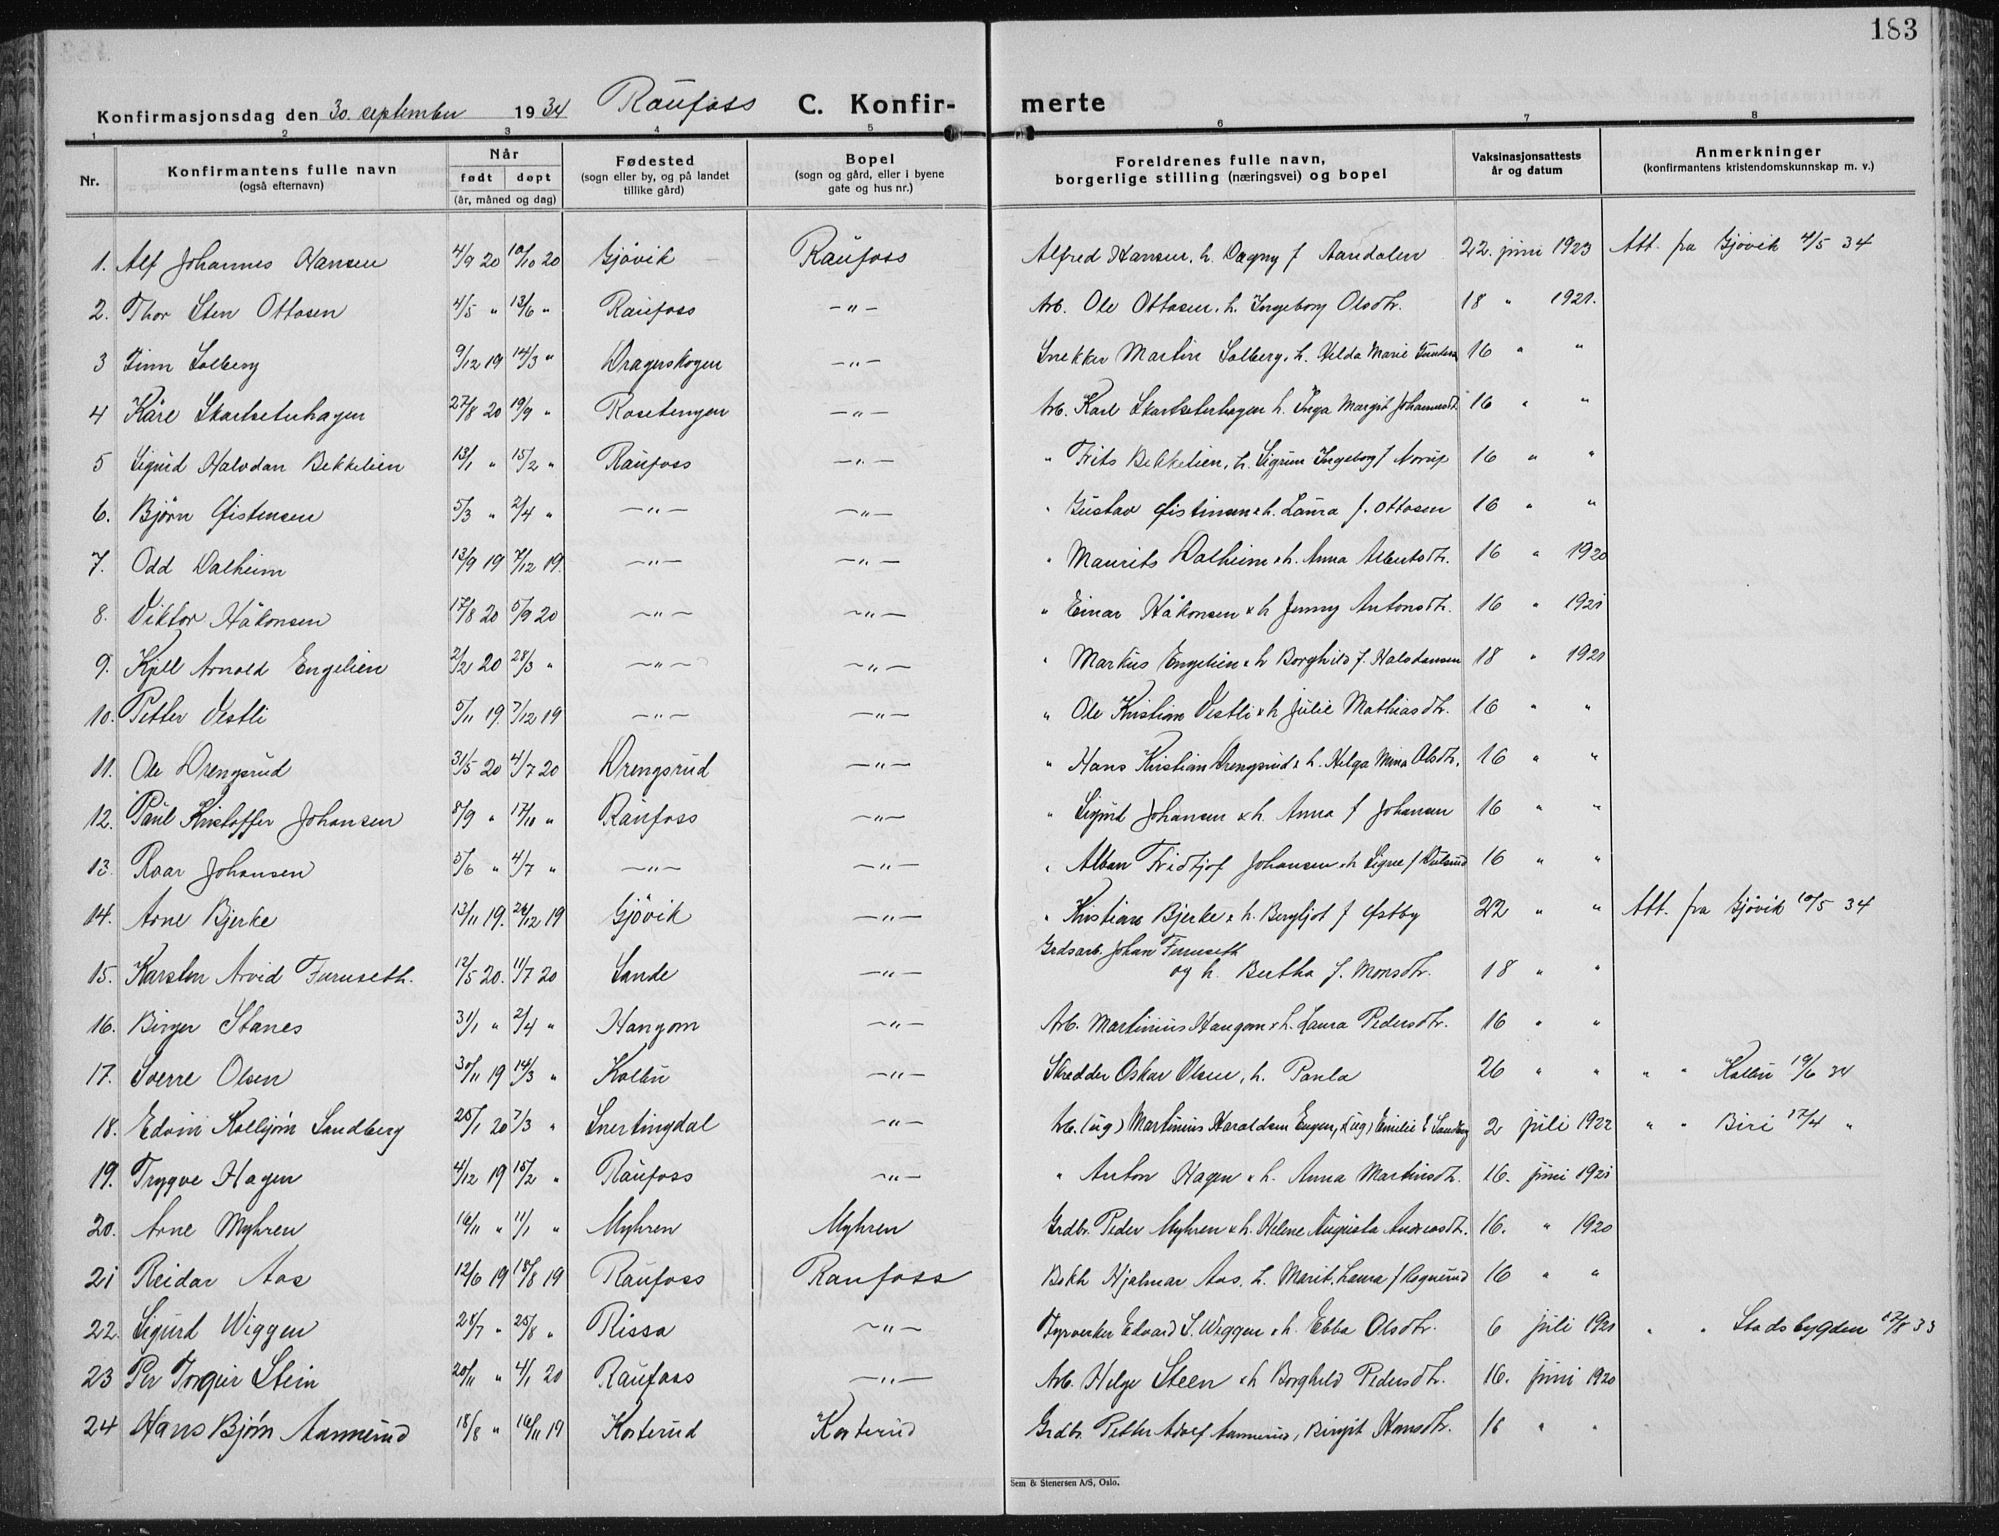 183
Konfirmasjonsdag den 30. september 1934 Raufoss C. Konfirmerte
1 2 3 4 5 6 7 8
Nr. Konfirmantens fulle navn (også efternavn) Når født døpt (år, måned og dag) Fødested (sogn eller by, og på landet tillike gård) Bopel (sogn og gård, eller i byene gate og hus nr.) Foreldrenes fulle navn, borgerlige stilling (næringsvei) og bopel Vaksinasjonsattests år og datum Anmerkninger (konfirmantens kristendomskunnskap m. v.)
1. Alf Johannes Hansen 4/9 20 10/10 20 Gjövik Raufoss Alfred Hansen, h. Dagny f Aandalen 22. juni 1923 Att. fra Gjövik 4/5 34
2. Thor Sten Ottosen 4/5 " 13/6 " Raufoss —"— Arb. Ole Ottosen, h. Ingeborg Olsdtr. 18 " 1921.
3 Finn Solberg 9/12 19 14/3 " Dragerskogen —"— Snekker Martin Solberg, h. Hilda Marie 16 " "
4 Kåre Skartseterhagen 27/8 20 19/9 " Rosetengen —"— Arb. Karl Skartseterhagen h. Inga Margit Johannesdt. 16 " "
5 Sigurd Halvdan Bekkelien 13/1 " 15/2 " Raufoss —"— " Frits Bekkelien, h. Sigrun Ingeborg f Norup 16 " "
6. Björn Øistensen 5/3 " 2/4 " —"— —"— " Gustav Øistensen & h. Laura f. Ottosen 16 " "
7. Odd Dalheim 13/9 19 7/12 19. —"— —"— " Maurits Dalheim & h. Anna Albertsdtr. 16 " 1920
8. Viktor Håkonsen 17/8 20 5/9 20 —"— —"— " Einar Håkonsen & h Jenny Antonsdtr. 16 " 1921
9. Kjell Arnold Engelien 2/2 20 28/3 " —"— —"— " Markus Engelien & h Borghild f. Halvdansen 18 " 1921
10. Petter Vestli 5/11 19. 7/12 19 —"— —"— " Ole Kristian Vestli & h Julie Mathiasdtr. 16 " "
11. Ole Drengsrud 31/5 20 4/7 20 Drengsrud —"— " Hans Kristian Drengsrud & h. Helga Mina Olsdtr. 16 " "
12. Paul Kristoffer Johansen 8/9 " 17/10 " Raufoss —"— " Sigurd Johansen & h. Anna f Johansen 16 " "
13. Roar Johansen 5/6 " 4/7 " —"— —"— " Alban Fridtjof Johansen & h Signe f 16 " "
14. Arne Bjerke 13/11 19. 26/12 19 Gjövik —"— " Kristian Bjerke & h. Bergljot f Østby 22 " " Att. fra Gjövik 10/5 34
15. Karsten Arvid Furuseth. 12/5 20. 11/7 20 Sande —"— Grdsarb. Johan Furuseth
og h. Bertha f. Monsdtr. 18 " "
16. Birger Stanes 31/1 " 2/4 " Hangom —"— Arb. Martinius Haugom & h. Laura Pedersdtr. 16 " "
17. Sverre Olsen 30/11 19 14/3 " Kolbu —"— Skredder Oskar Olsen, h. Paula 26 " " " " Kolbu 19/6 34
18. Edvin Kolbjørn Sandberg 25/1 20 7/3 " Snertingdal —"— Arb. (ug) Martinius Haraldsen Engen, (ug) Emilie E Sandberg 2 juli 1922 " " Biri 17/4 "
19. Trygve Hagen 4/12 19 15/2 " Raufoss —"— " Anton Hagen & h. Anna Martinsdtr. 16. juni 1921
20. Arne Myhren 16/11 " 11/1 " Myhren Myhren Grdbr. Peder Myhren & h. Helene Augusta Andreasdtr. 16. " 1920
21 Reidar Aas 12/6 19 18/8 19 Raufoss Raufoss Bokh Hjalmar Aas, h. Marit Laura f Rognerud 16 " "
22. Sigurd Wiggen 28/7 " 25/8 " Rissa —"— Fyrverker Edvard S. Wiggen & h. Ebba Olsdtr. 6 juli 1921 " " Stadsbygden 12/8 33
23 Per Torgeir Stein 20/11 " 4/1 20 Raufoss —"— Arb. Helge Steen & h Borghild Pedersdtr. 16. juni 1920
24 Hans Bjørn Aannerud 18/8 " 16/11 19 Kosterud Kosterud Grdbr. Petter Adolf Aannerud, Birgit Hansdtr. 16 " "
Sem & Stenersen A/S, Oslo.